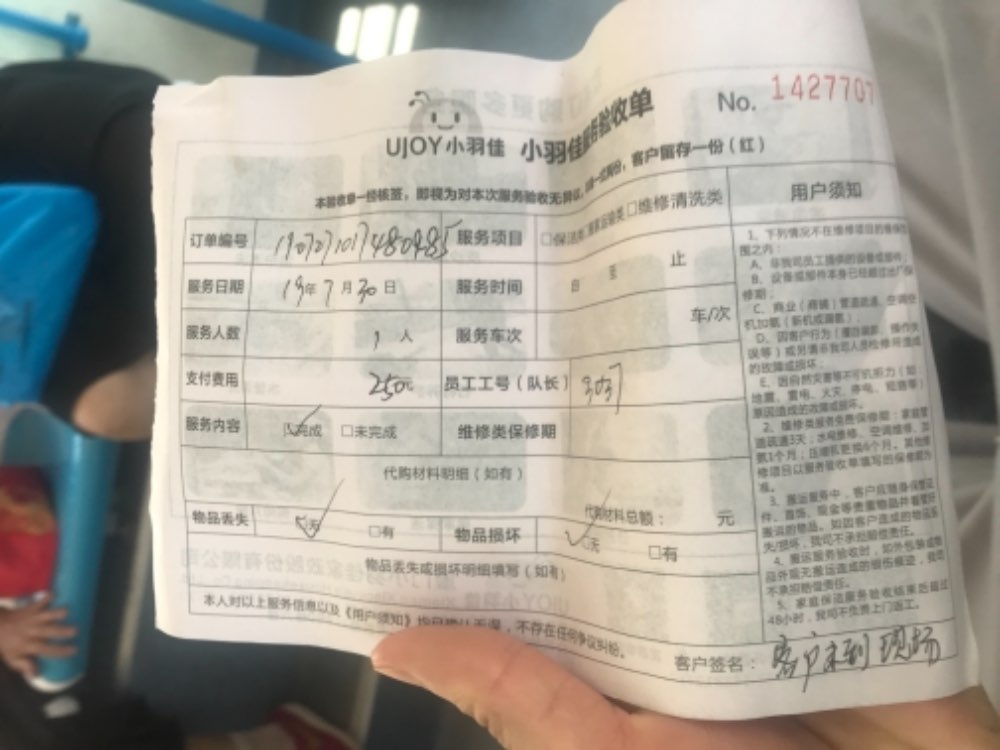 No. 1427707
UJOY小羽佳 小羽佳服务验收单
本验收单一经核签，即视为对本次服务验收无异议，客户留存一份（红）
订单编号 服务项目 □维修清洗类
服务日期 19年7月30日 服务时间 自 至 止
服务人数 1人 服务车次 车/次
支付费用 250元 员工工号（队长） 3037
服务内容 □完成 □未完成 维修类保修期
代购材料明细（如有）
代购材料总额： 元
物品丢失 □无 □有 物品损坏 □无 □有
物品丢失或损坏明细填写（如有）
本人对以上服务信息以及《用户须知》均已确认无误，不存在任何争议纠纷。
客户签名：客户未到现场
用户须知
1、下列情况不在维修项目的维保范
围之内：
A、非我司员工提供的设备或部件；
B、设备或部件本身已经超过出厂保
修期；
C、商业（商铺）管道疏通、空调空
机加氨（新机或漏氨）；
D、因客户行为
误等）或另请非我司人员检修所造成
的故障或损坏；
E、因自然灾害等不可抗拒力（如：
地震、雷电、火灾、停电、短路等）
原因造成的故障或损坏。
2、维修类服务免费保修期：家庭管
道疏通3天；水电维修、空调维修、加
氨1个月；压缩机更换6个月。其他维
修项目以服务验收单填写的保修期为
准。
3、搬运服务中，客户应随身保管证
件、首饰、现金等贵重物品并看管好
搬运的物品。如因客户造成的物品丢
失/损坏，我司不承担赔偿责任。
4、搬运服务验收时，如外包装或物
品外观无搬运造成的损伤痕迹，我司
不承担赔偿责任。
5、家庭保洁服务验收结束后超过
48小时，我司不免费上门返工。